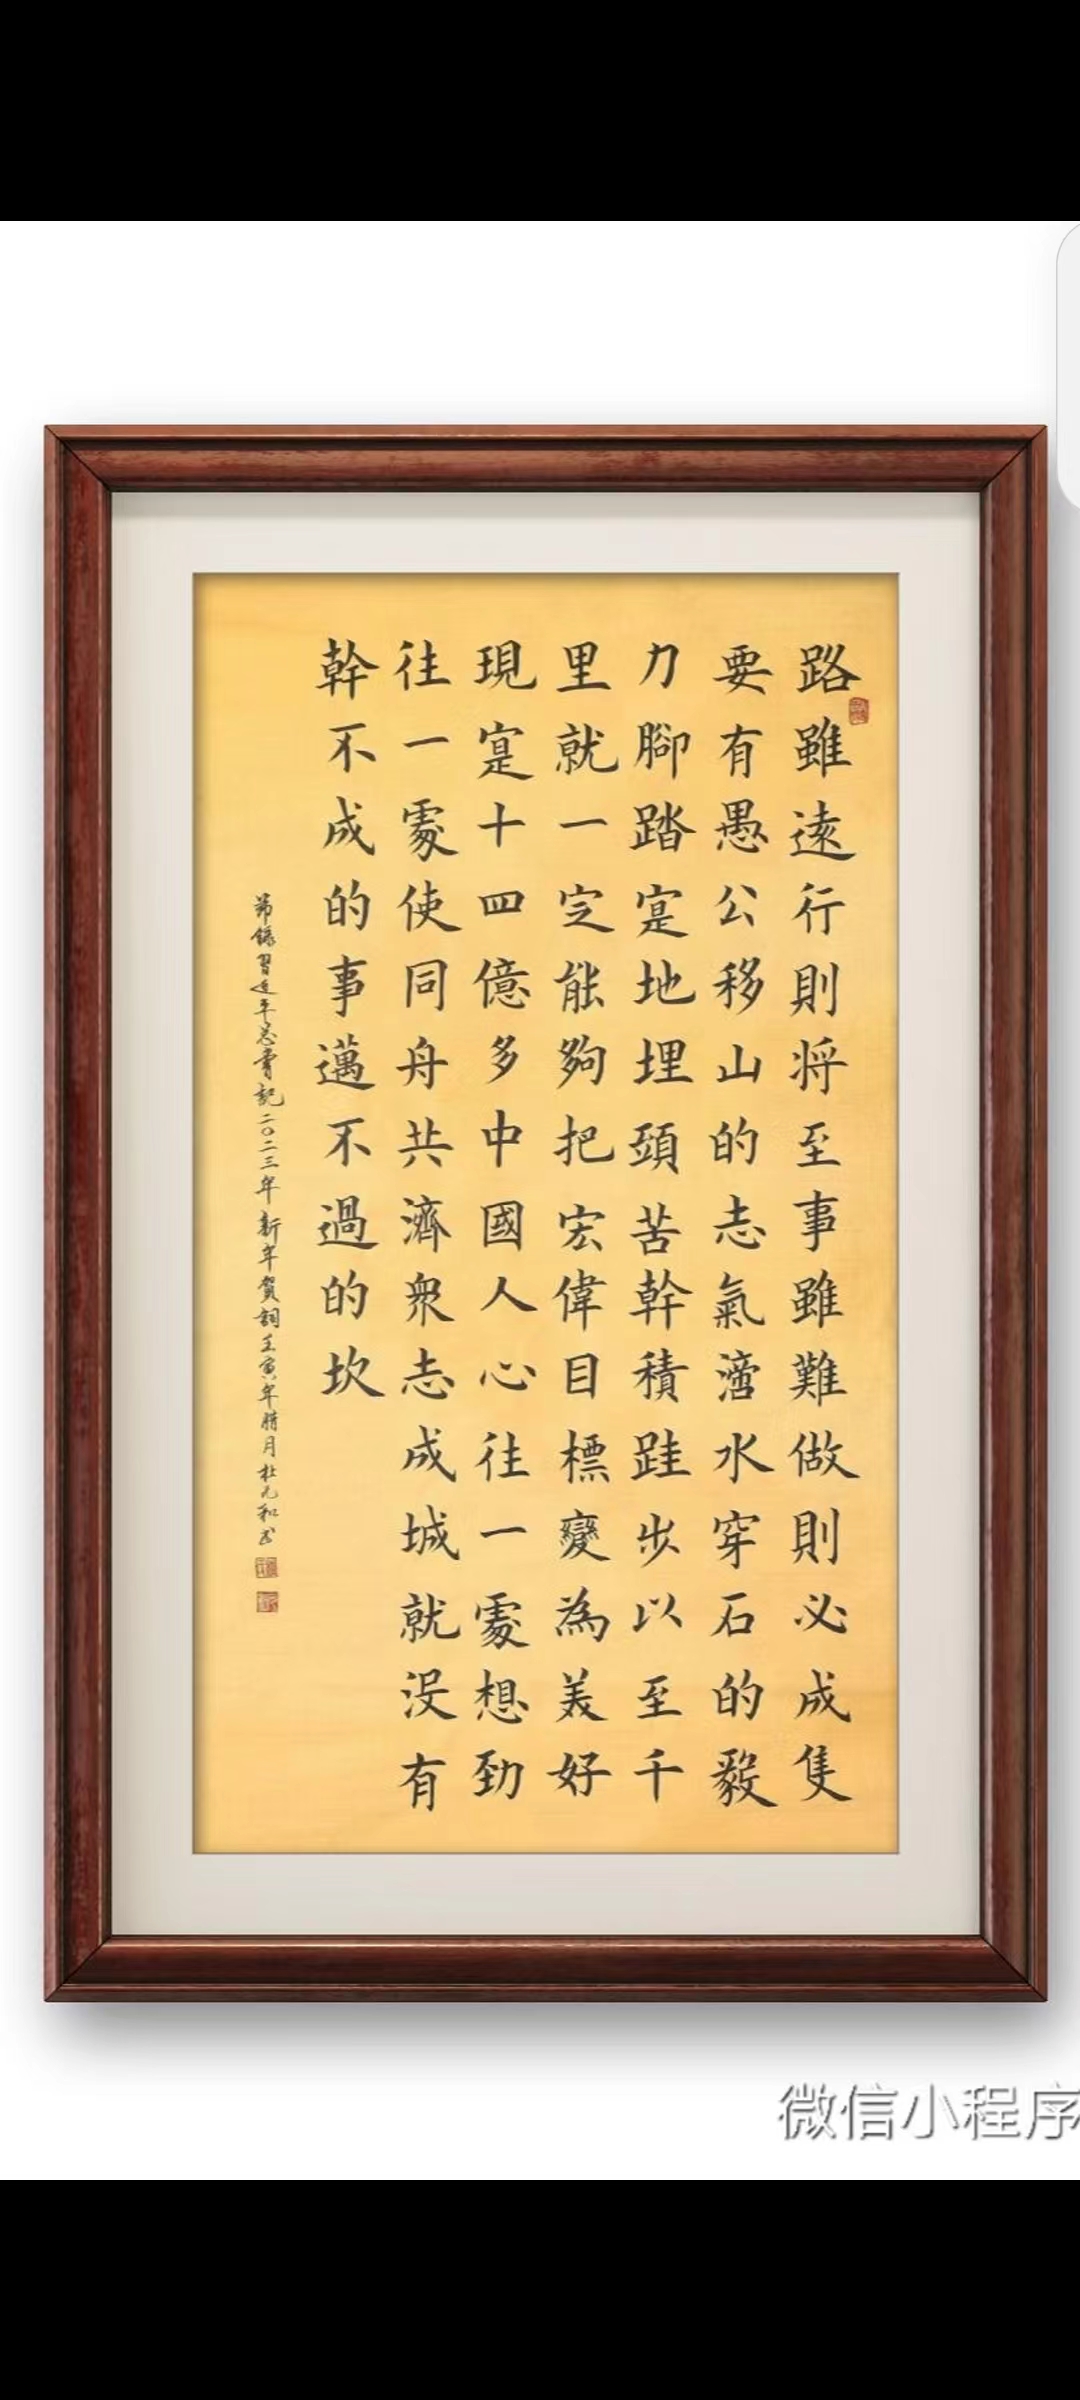 路雖遠行則将至事雖難做則必成隻
要有愚公移山的志氣滴水穿石的毅
力腳踏寔地埋頭苦幹積跬步以至千
里就一定能夠把宏偉目標變為美好
現寔十四億多中國人心往一處想勁
往一處使同舟共濟衆志成城就没有
幹不成的事邁不過的坎
節録習近平总書記二〇二三年新年賀詞壬寅年腊月杜元和书
微信小程序